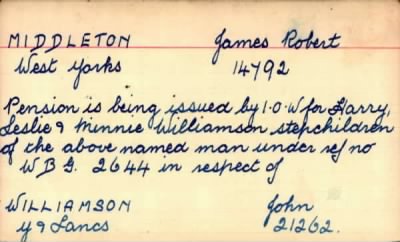 MIDDLETON James Robert
West Yorks 14792
Pension is being issued by I.O.W for Harry,
Leslie & Minnie Williamson stepchildren
of the above named man under ref no
W B G. 2644 in respect of
WILLIAMSON John
Y & Lancs 21262.